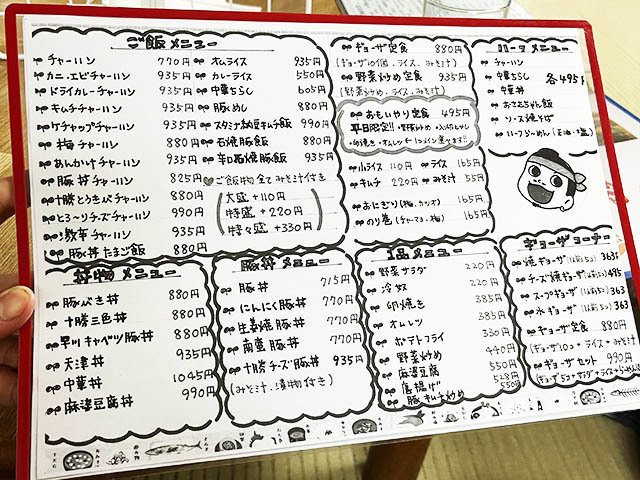 ご飯メニュー
チャーハン 770円
カニ、エビチャーハン 935円
ドライカレーチャーハン 935円
キムチチャーハン 935円
ケチャップチャーハン 935円
梅チャーハン 880円
あんかけチャーハン 935円
豚丼チャーハン 825円
十勝とうきびチャーハン 880円
とろ〜りチーズチャーハン 990円
激辛チャーハン 935円
豚丼たまご飯 880円
オムライス 935円
カレーライス 550円
中華ちらし 605円
豚めし 880円
スタミナ納豆キムチ飯 990円
石焼豚飯 880円
辛口石焼豚飯 935円
ご飯物全てみそ汁付き
大盛+110円
特盛+220円
特々盛+330円
ギョーザ定食 880円
(ギョーザ10個、ライス、みそ汁)
野菜炒め定食 935円
(野菜炒め、ライス、みそ汁)
おもいやり定食 495円
平日限定!!
小ライス 110円
ライス 165円
キムチ 220円
みそ汁 55円
おにぎり(梅、カツオ) 165円
のり巻(チャーマヨ、梅) 165円
ハーフメニュー
チャーハン
中華ちらし
中華丼
各495円
あさこちゃん飯
ソース焼そば
ハーフらーめん(正油・塩)
丼物メニュー
豚びき丼 880円
十勝三色丼 880円
早川キャベツ豚丼 880円
天津丼 935円
中華丼 1045円
麻婆豆腐丼 990円
豚丼メニュー
豚丼 715円
にんにく豚丼 770円
生姜焼豚丼 770円
南蛮豚丼 770円
十勝チーズ豚丼 935円
(みそ汁、漬物付き)
1品メニュー
野菜サラダ 220円
冷奴 220円
卵焼き 385円
オムレツ 385円
ポテトフライ 330円
野菜炒め 440円
麻婆豆腐 550円
唐揚げ 528円
豚キムチ炒め 550円
ギョーザコーナー
焼ギョーザ(1皿5コ) 363円
チーズ焼ギョーザ(1皿5コ) 495
スープギョーザ(1皿5コ) 363
水ギョーザ(1皿5コ) 363
ギョーザ定食 880円
(ギョーザ10コ+ライス+みそ汁)
ギョーザセット 990円